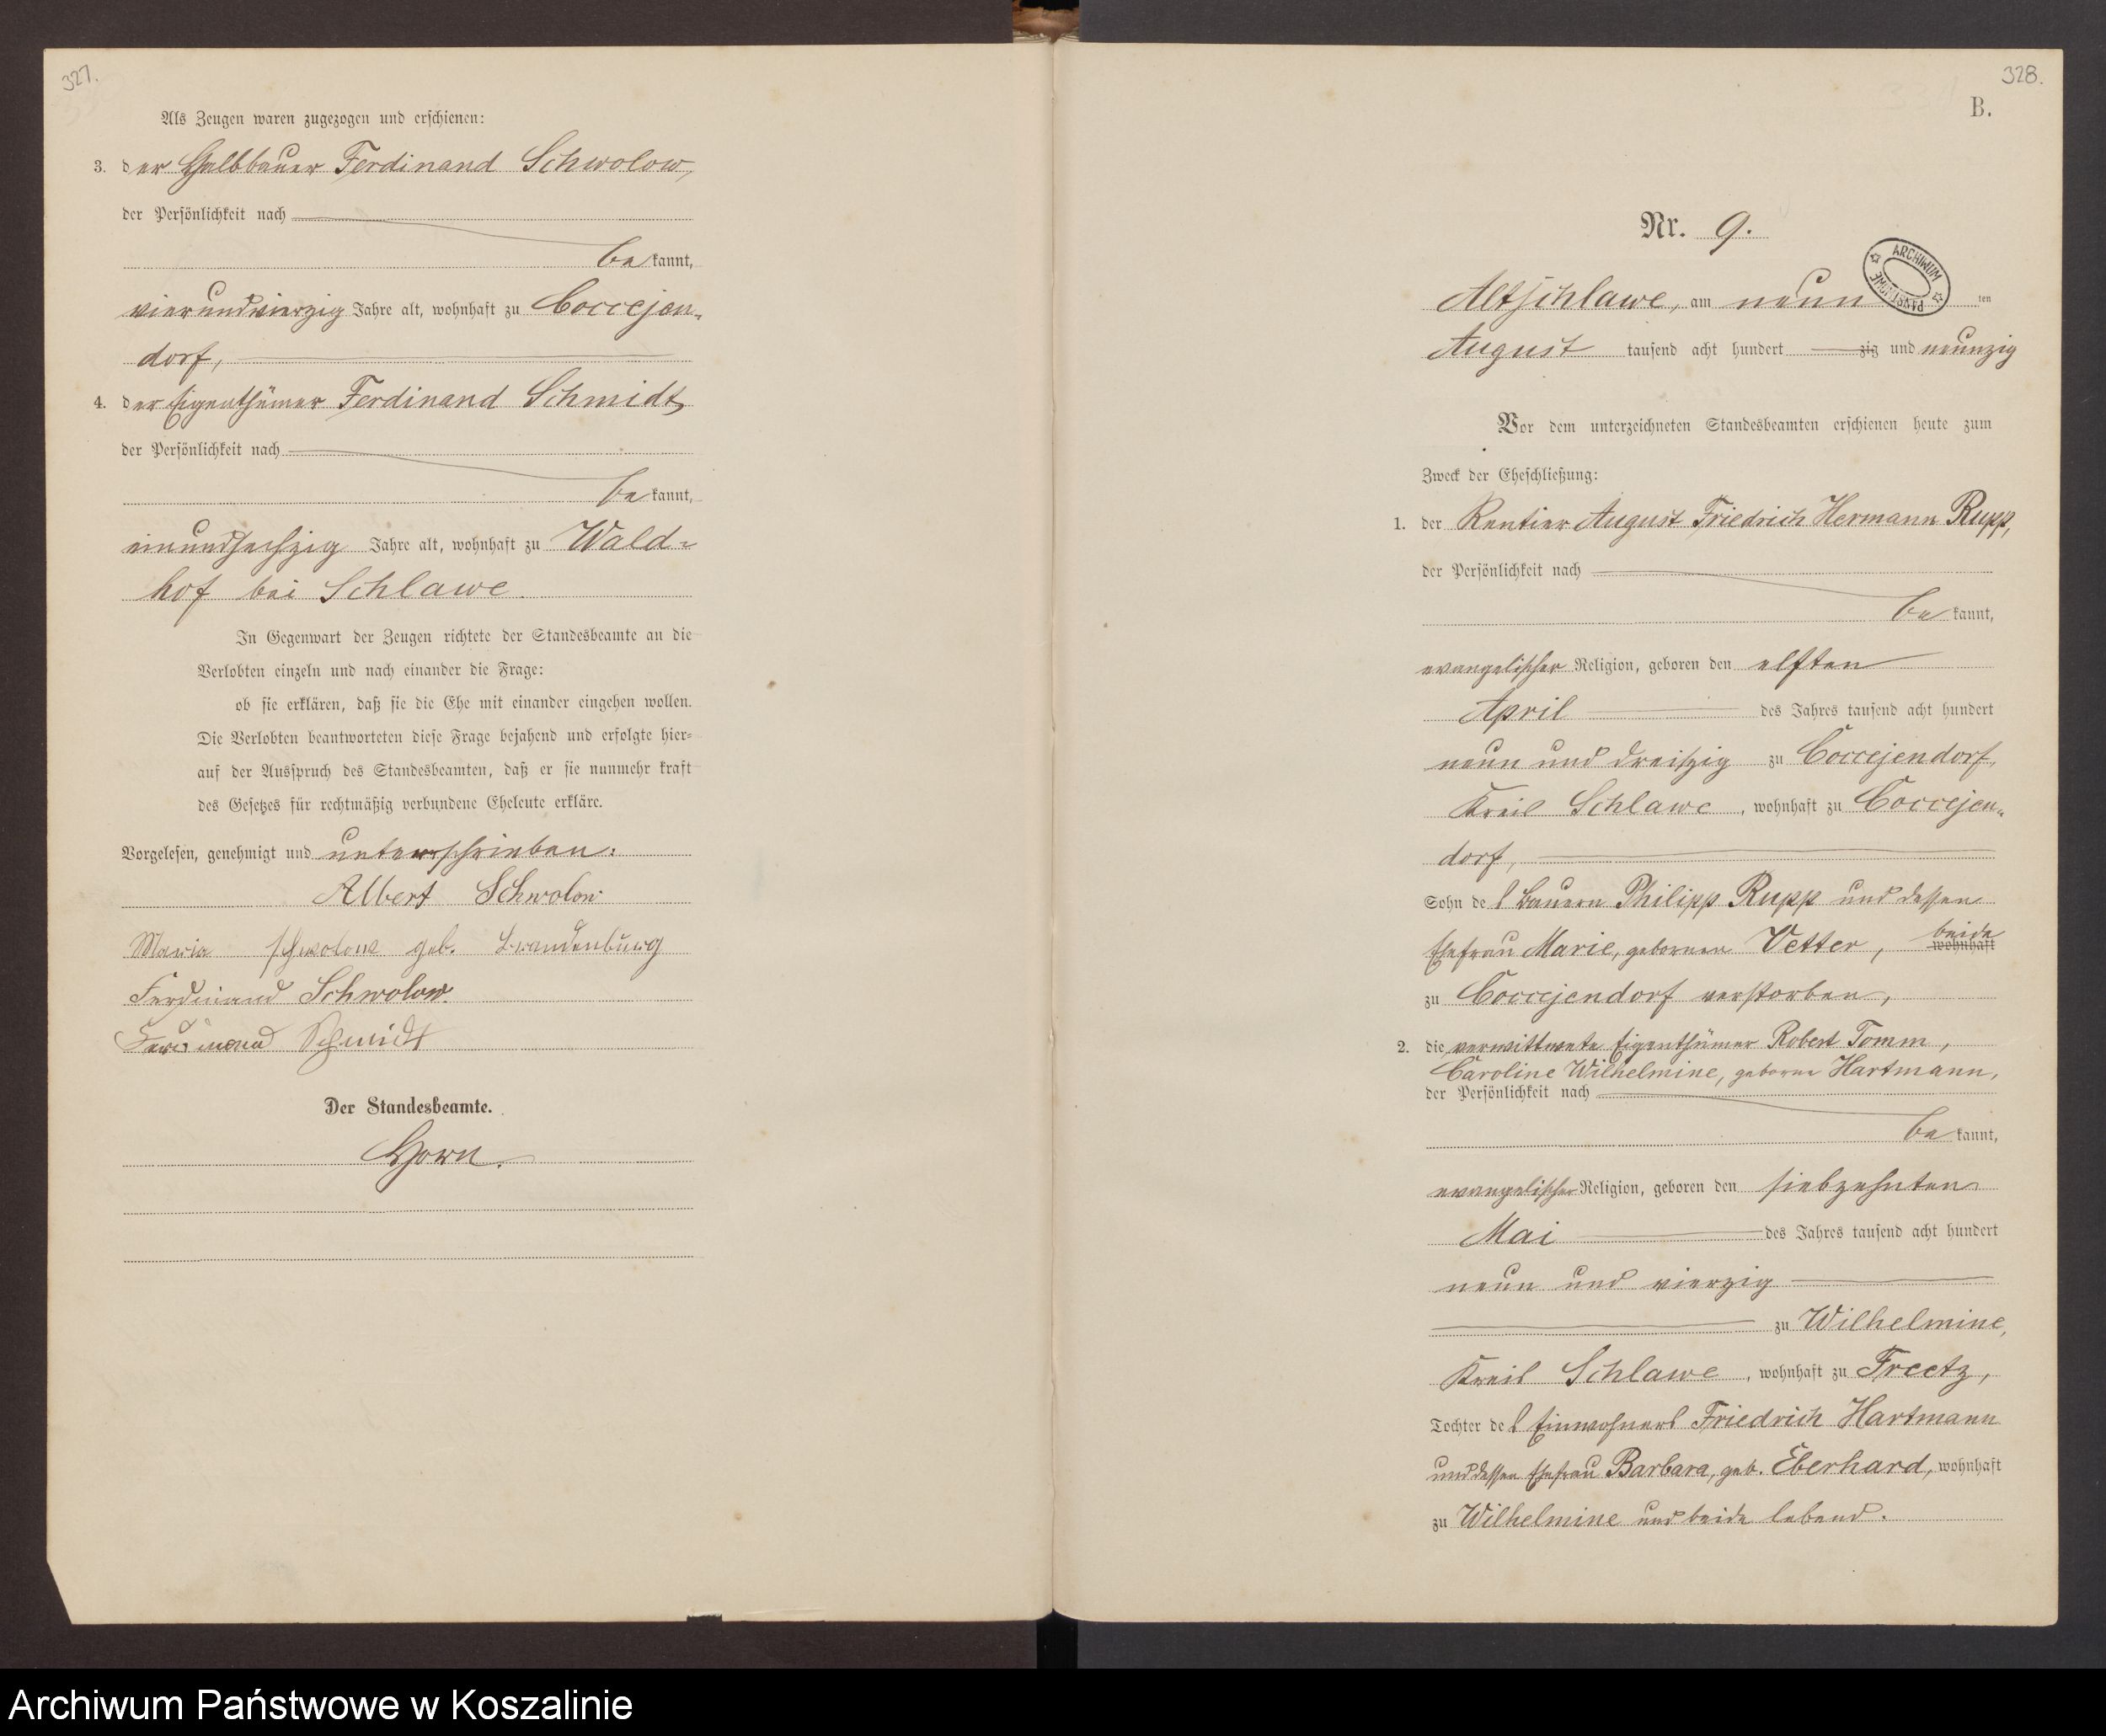 327.
Als Zeugen waren zugezogen und erschienen:
3. der Halbbauer Ferdinand Schwolow,
der Persönlichkeit nach
bekannt,
vierundvierzig Jahre alt, wohnhaft zu Coccejen-
dorf,
4. der Eigenthümer Ferdinand Schmidt,
der Persönlichkeit nach
bekannt,
einundsechszig Jahre alt, wohnhaft zu Wald-
hof bei Schlawe.
In Gegenwart der Zeugen richtete der Standesbeamte an die
Verlobten einzeln und nach einander die Frage:
ob sie erklären, daß sie die Ehe mit einander eingehen wollen.
Die Verlobten beantworteten diese Frage bejahend und erfolgte hier-
auf der Ausspruch des Standesbeamten, daß er sie nunmehr kraft
des Gesetzes für rechtmäßig verbundene Eheleute erkläre.
Vorgelesen, genehmigt und unterschrieben:
Albert Schwolow
Maria Schwolow geb. Brandenburg
Ferdinand Schwolow.
Ferdinand Schmidt
Der Standesbeamte.
Horn.
328.
B.
Nr. 9.
ARCHIWUM PAŃSTWOWE
Altschlawe, am neunten
August tausend acht hundert zig und neunzig
Vor dem unterzeichneten Standesbeamten erschienen heute zum
Zweck der Eheschließung:
1. der Rentier August Friedrich Hermann Rupp,
der Persönlichkeit nach
bekannt,
evangelischer Religion, geboren den elften
April des Jahres tausend acht hundert
neun und dreißzig zu Coccejendorf,
Kreis Schlawe, wohnhaft zu Coccejen-
dorf,
Sohn des Bauern Philipp Rupp und dessen
Ehefrau Marie, geborenen Vetter, beide wohnhaft
zu Coccejendorf verstorben,
2. die verwittwete Eigenthümer Robert Tomm,
Caroline Wilhelmine, geborne Hartmann,
der Persönlichkeit nach
bekannt,
evangelischer Religion, geboren den siebzehnten
Mai des Jahres tausend acht hundert
neun und vierzig
zu Wilhelmine,
Kreis Schlawe, wohnhaft zu Freetz,
Tochter des Einwohners Friedrich Hartmann
und dessen Ehefrau Barbara, geb. Eberhard, wohnhaft
zu Wilhelmine und beide lebend.
Archiwum Państwowe w Koszalinie